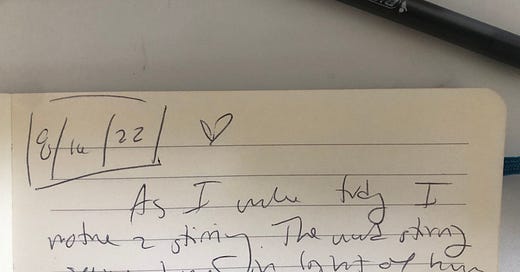 8/14/22 ♡
As I wake today I
notice a stirring. The word stirring
in light of